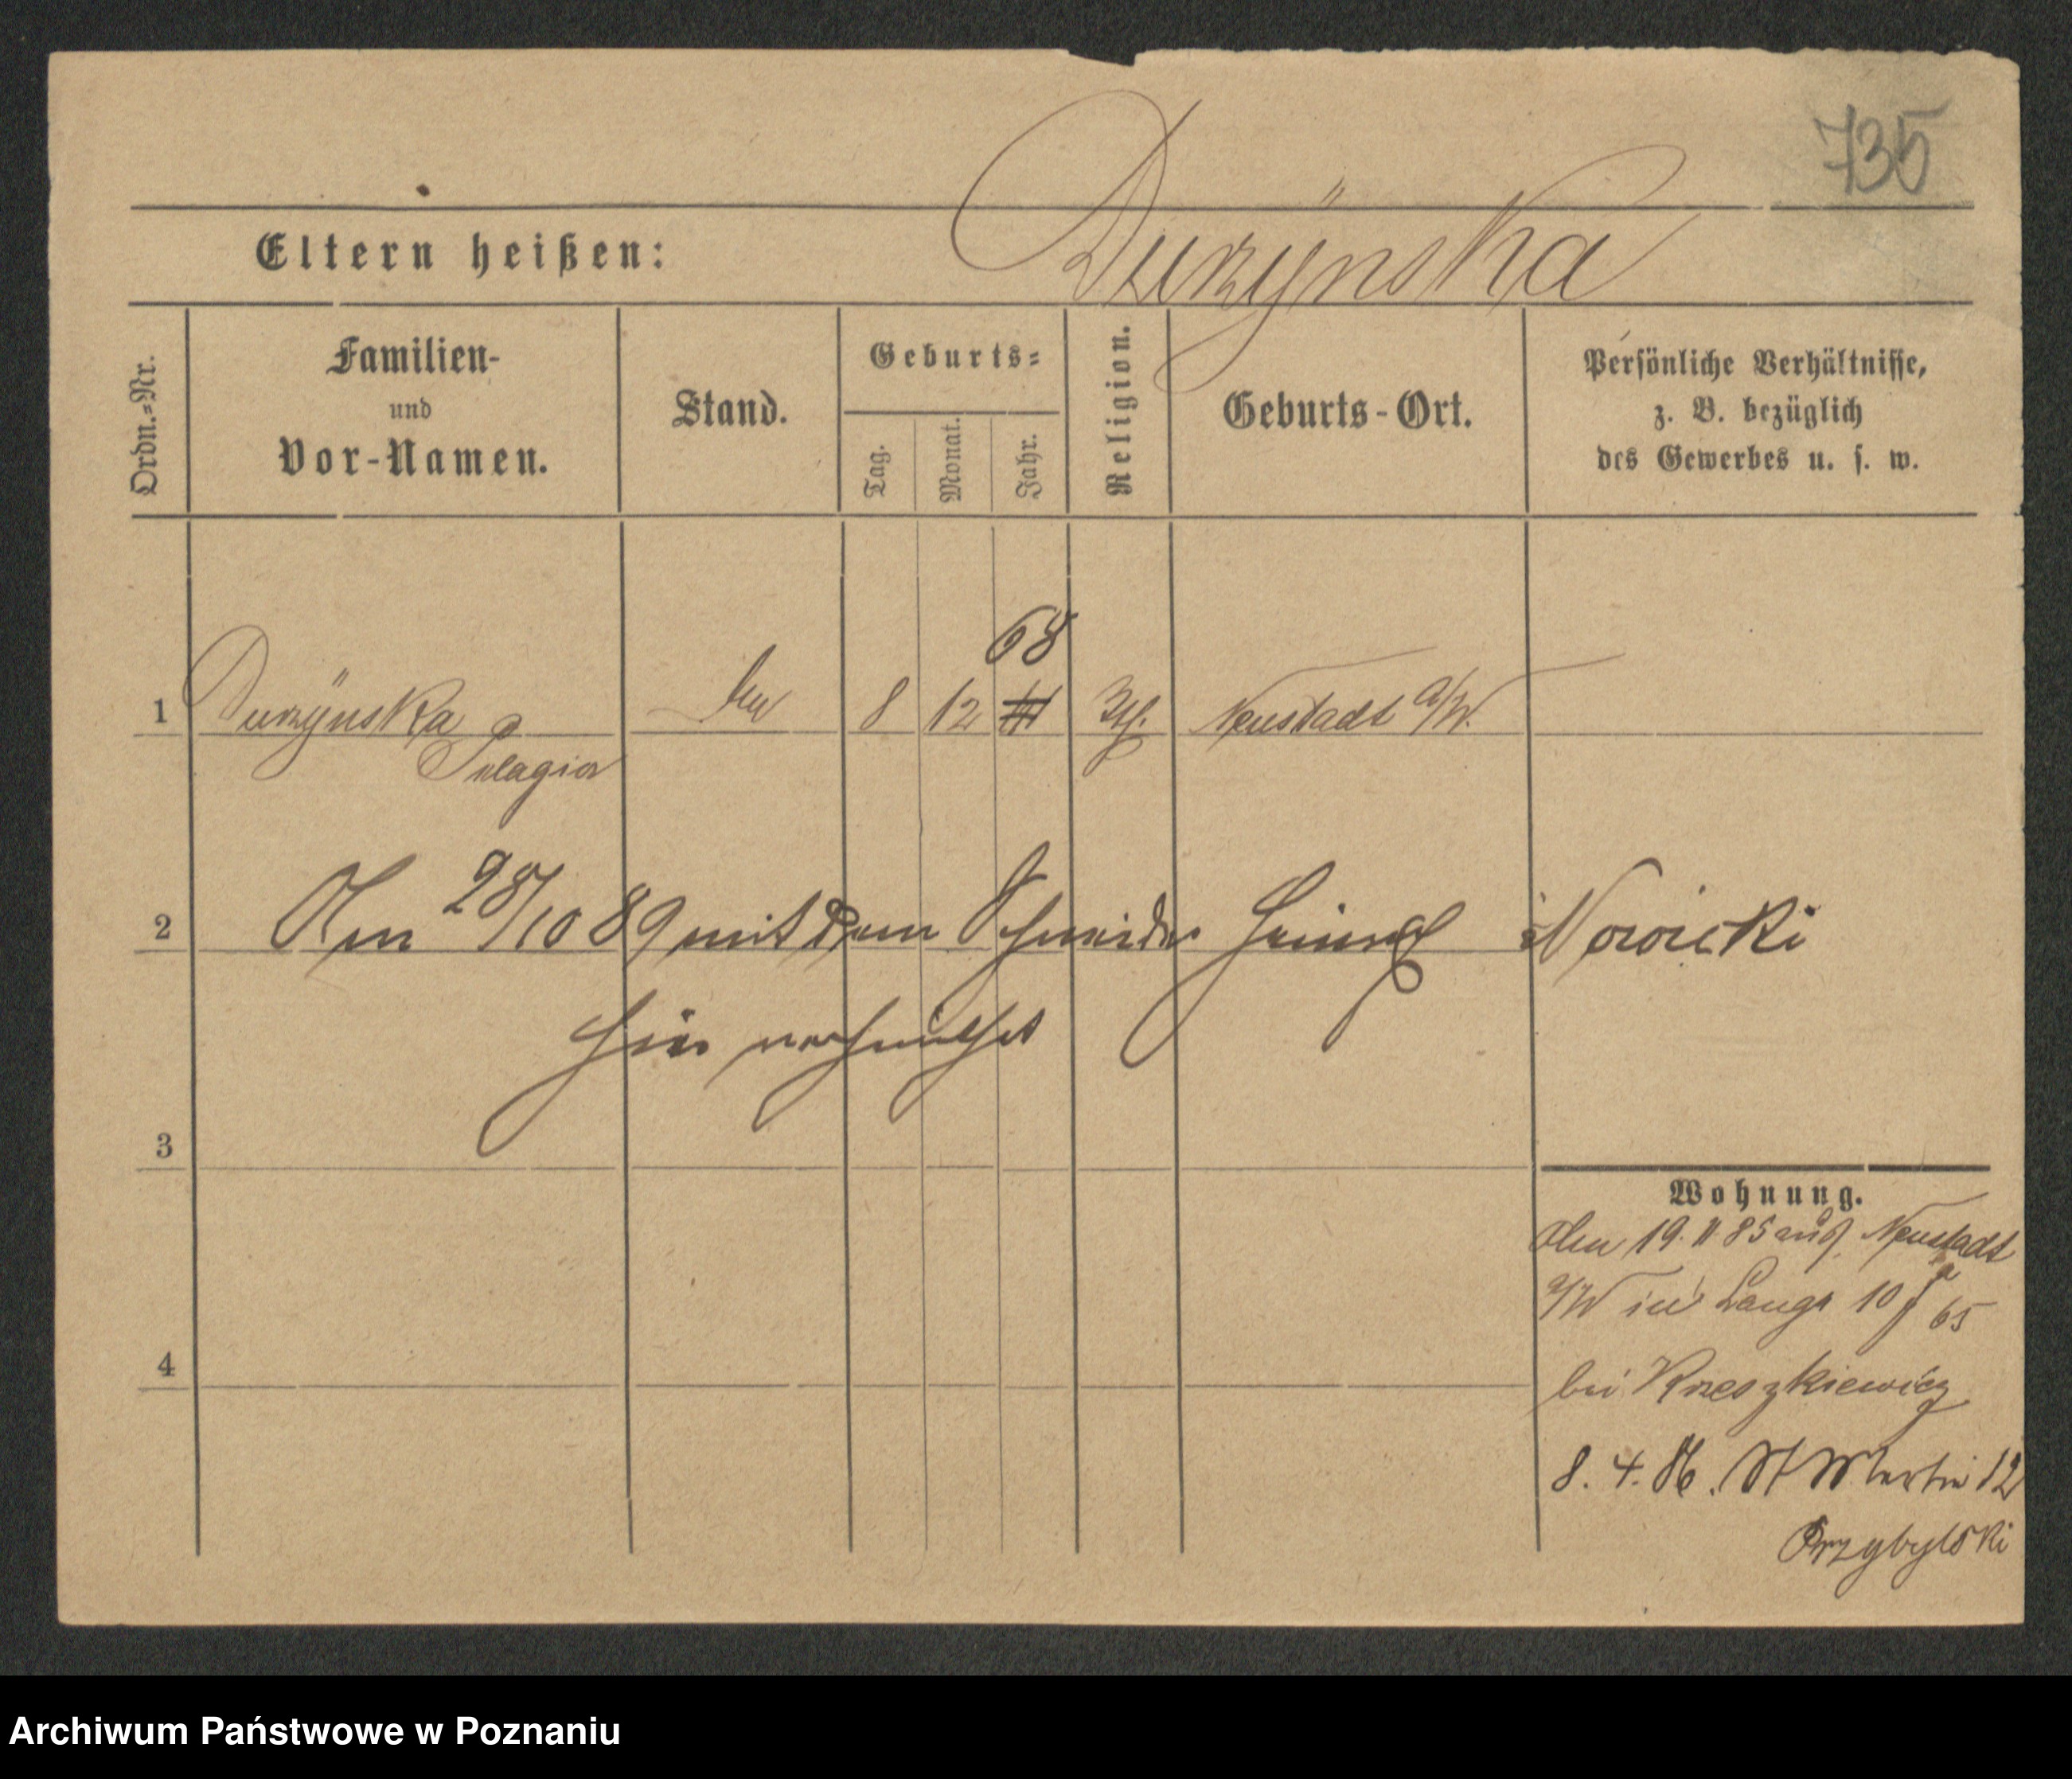 735
Eltern heißen: Durzÿnska
Ordn.=Nr.
Familien-
und
Vor-Namen.
Stand.
Geburts=
Tag.
Monat.
Jahr.
Religion.
Geburts-Ort.
Persönliche Verhältnisse,
z. B. bezüglich
des Gewerbes u. s. w.
68
1 Durzÿnska 8 12 Neustadt a/W.
Pelagia
2 Am 28/10 89 mit dem Schneider Heinrich Nowicki
hier verheirathet
3
Wohnung.
Am 19. 11 85 aus Neustadt
a/W in Lange 10
65
4
bei Krzeszkiewicz
8. 4. 86. St Martin 12
Przybylski
Archiwum Państwowe w Poznaniu